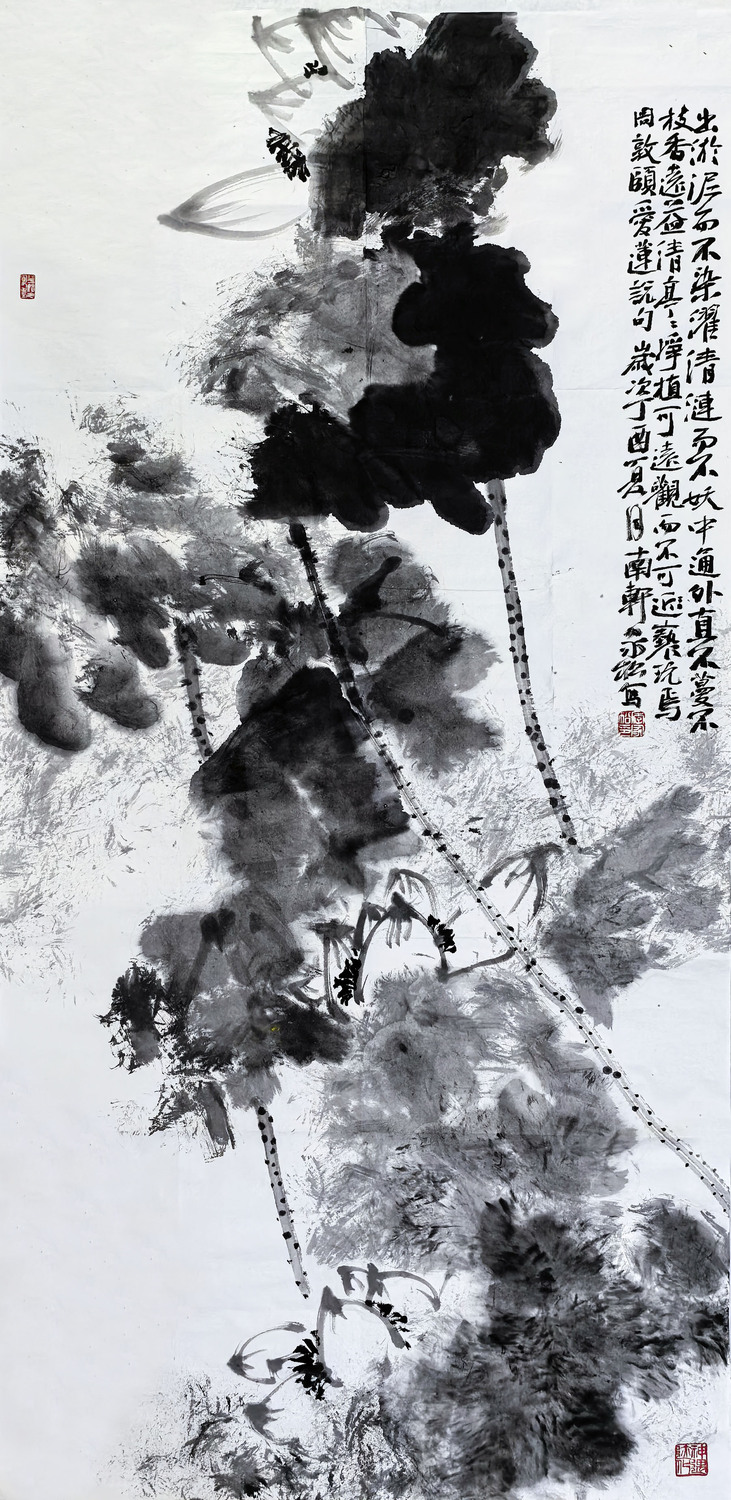 出淤泥而不染濯清漣而不妖中通外直不蔓不
枝香遠益清亭々淨植可遠觀而不可近褻玩焉
周敦頤愛蓮說句 歲次丁酉夏月南軒 寫
神遇迹化